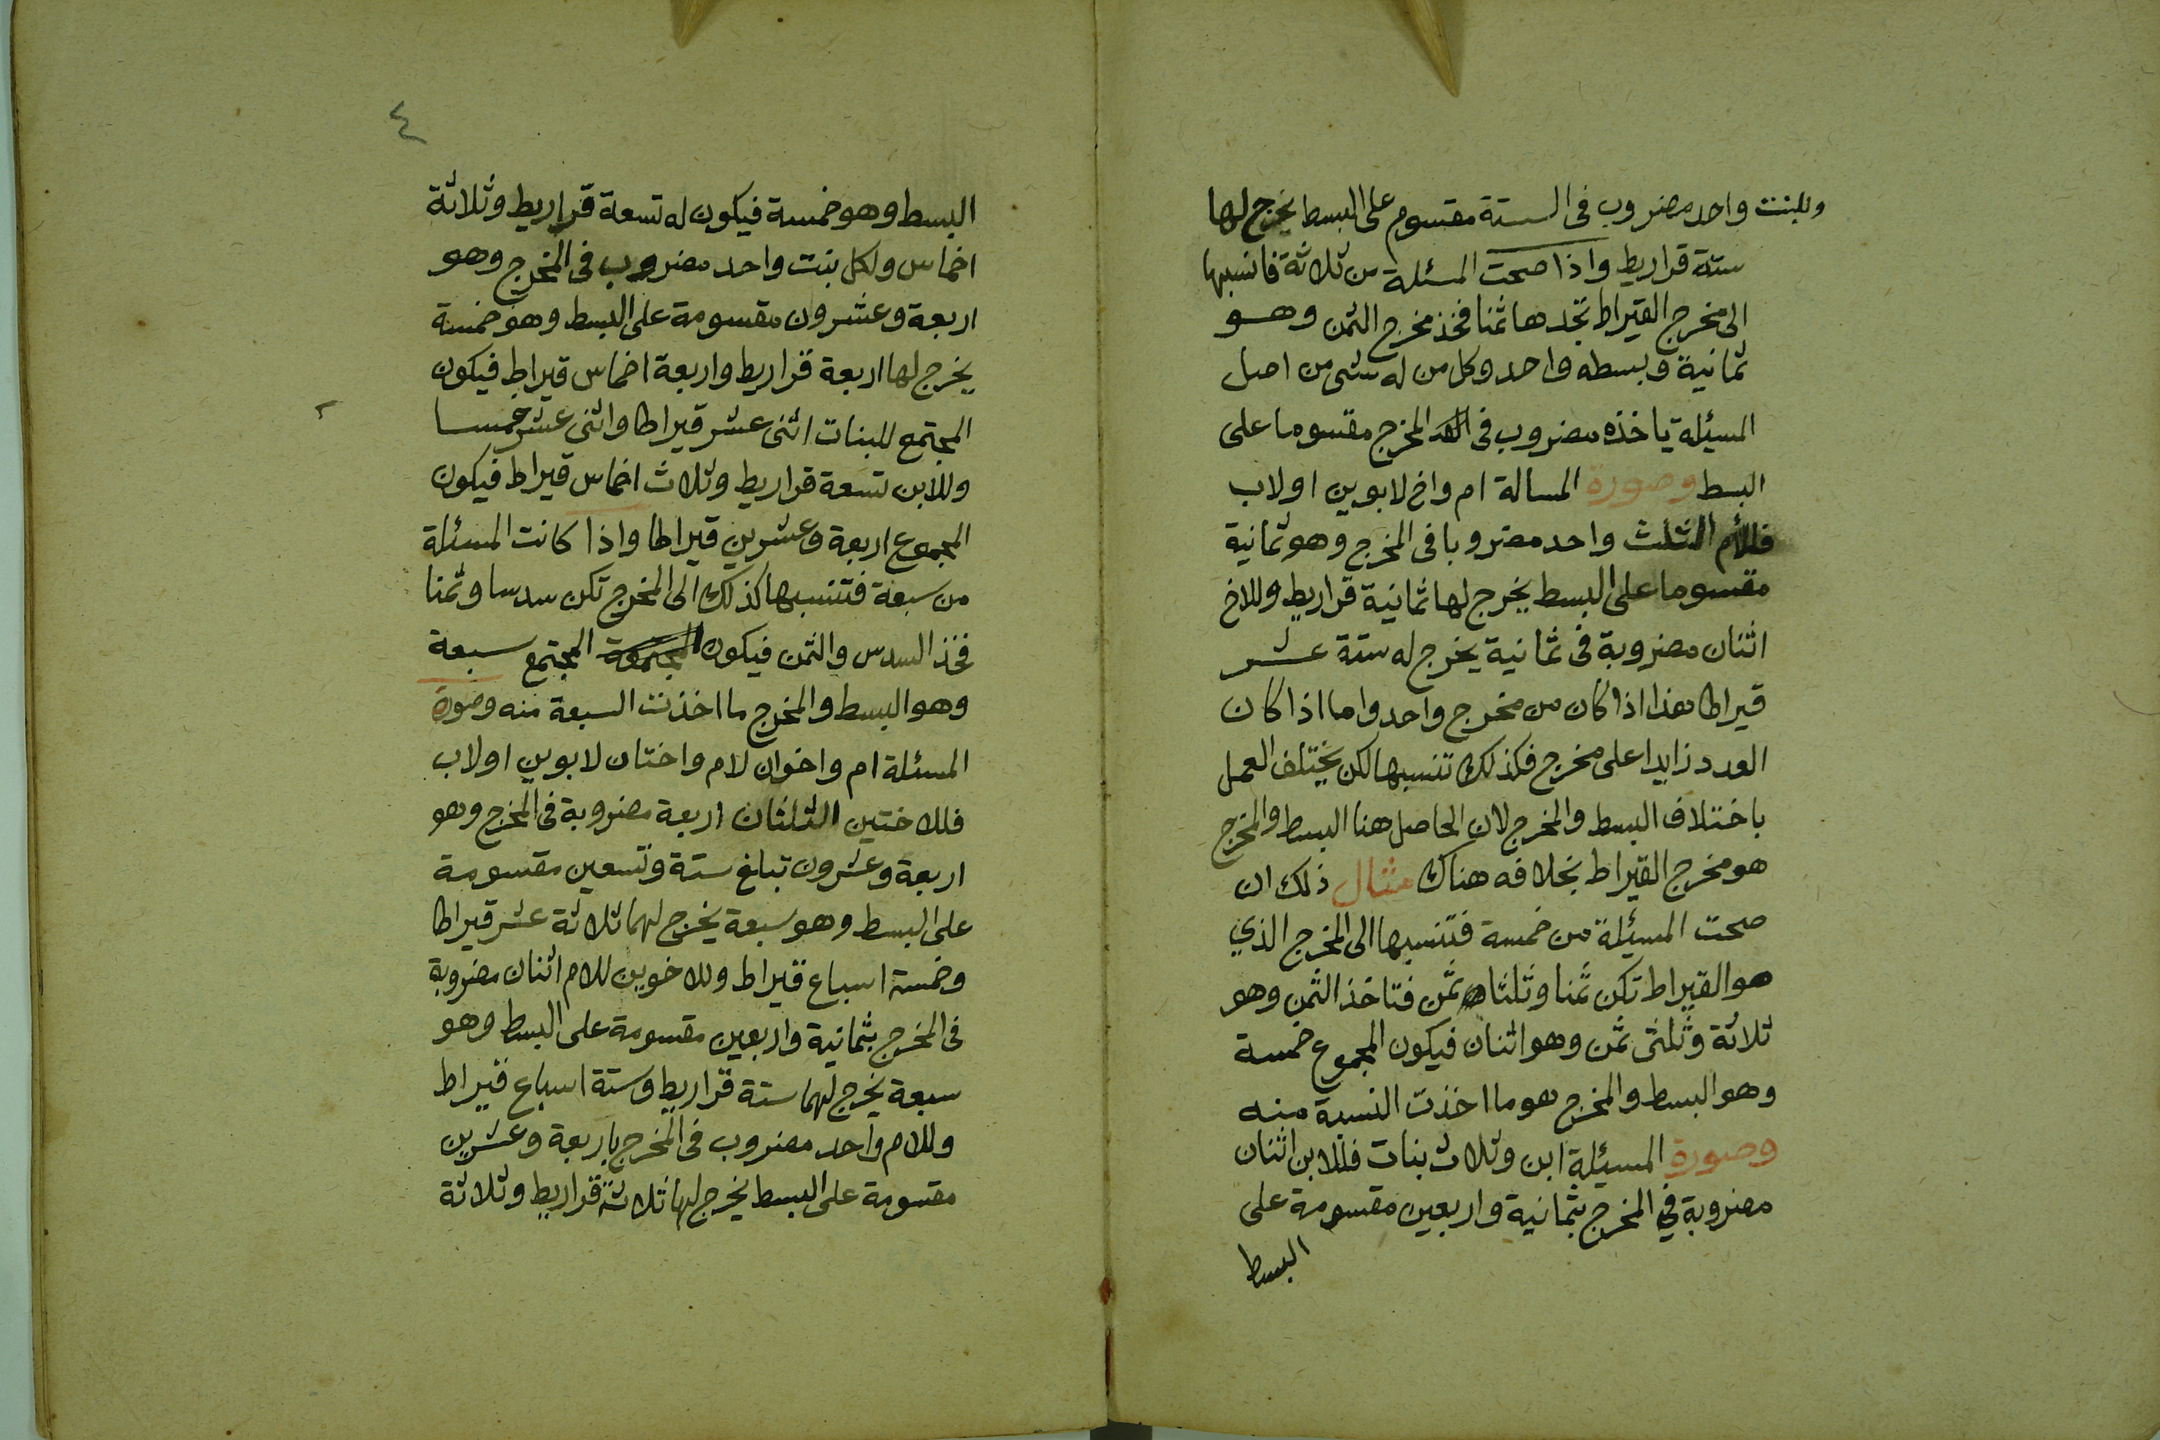 وللبنت واحد مضروب فى الستة مقسوم على البسط يخرج لها
ستة قراريط واذا صحت المسئلة من ثلاثة فانسبها
الى مخرج القيراط تجدها ثمنا فخذ مخرج الثمن وهو
ثمانية وبسطه واحد وكل من له شى من اصل
المسيئلة ياخذه مضروب فى المخرج مقسوما على
البسط وصورة المسالة ام واخ لابوين اولاب
فللأم الثلث واحد مضروبا فى المخرج وهو ثمانية
مقسوما على البسط يخرج لها ثمانية قراريط وللاخ
اثنان مضروبة فى ثمانية يخرج له ستة عشر
قيراطا هذا اذا كان من مخرج واحد واما اذا كان
العدد زايدا على مخرج فكذلك تنسبها لكن يختلف العمل
باختلاف البسط والمخرج لان الحاصل هنا البسط والمخرج
هو مخرج القيراط بخلافه هناك مثال ذلك ان
صحت المسيئلة من خمسة فتنسبها الى المخرج الذي
هو القيراط تكن ثمنا وثلثا ثمن فتاخذ الثمن وهو
ثلاثة وثلثى ثمن وهو اثنان فيكون المجموع خمسة
وهو البسط والمخرج هو ما اخذت النسبة منه
وصورة المسيئلة ابن وثلاث بنات فللابن اثنان
مضروبة في المخرج بثمانية واربعين مقسومة على
البسط
٤
البسط وهو خمسة فيكون له تسعة قراريط وثلاثة
اخماس ولكل بنت واحد مضروب فى المخرج وهو
اربعة وعشرون مقسومة على البسط وهو خمسة
يخرج لها اربعة قراريط واربعة اخماس قيراط فيكون
المجتمع للبنات اثنى عشر قيراطا واثنى عشر خمسا
وللابن تسعة قراريط وثلاث اخماس قيراط فيكون
المجموع اربعة وعشرين قيراطا واذا كانت المسئلة
من سبعة فتنسبها كذلك الى المخرج تكن سدسا وثمنا
فخذ السدس والثمن فيكون المجتمعة المجتمع سبعة
وهو البسط والمخرج ما اخذت السبعة منه وصورة
المسئلة ام واخوان لام واختان لابوين اولاب
فللاختين الثلثان اربعة مضروبة فى المخرج وهو
اربعة وعشرون تبلغ ستة وتسعين مقسومة
على البسط وهو سبعة يخرج لهما ثلاثة عشر قيراطا
وخمسة اسباع قيراط وللاخوين للام اثنان مضروبة
فى المخرج بثمانية واربعين مقسومة على البسط وهو
سبعة يخرج لهما ستة قراريط وستة اسباع قيراط
وللام واحد مضروب فى المخرج باربعة وعشرين
مقسومة على البسط يخرج لها ثلاثة قراريط وثلاثة